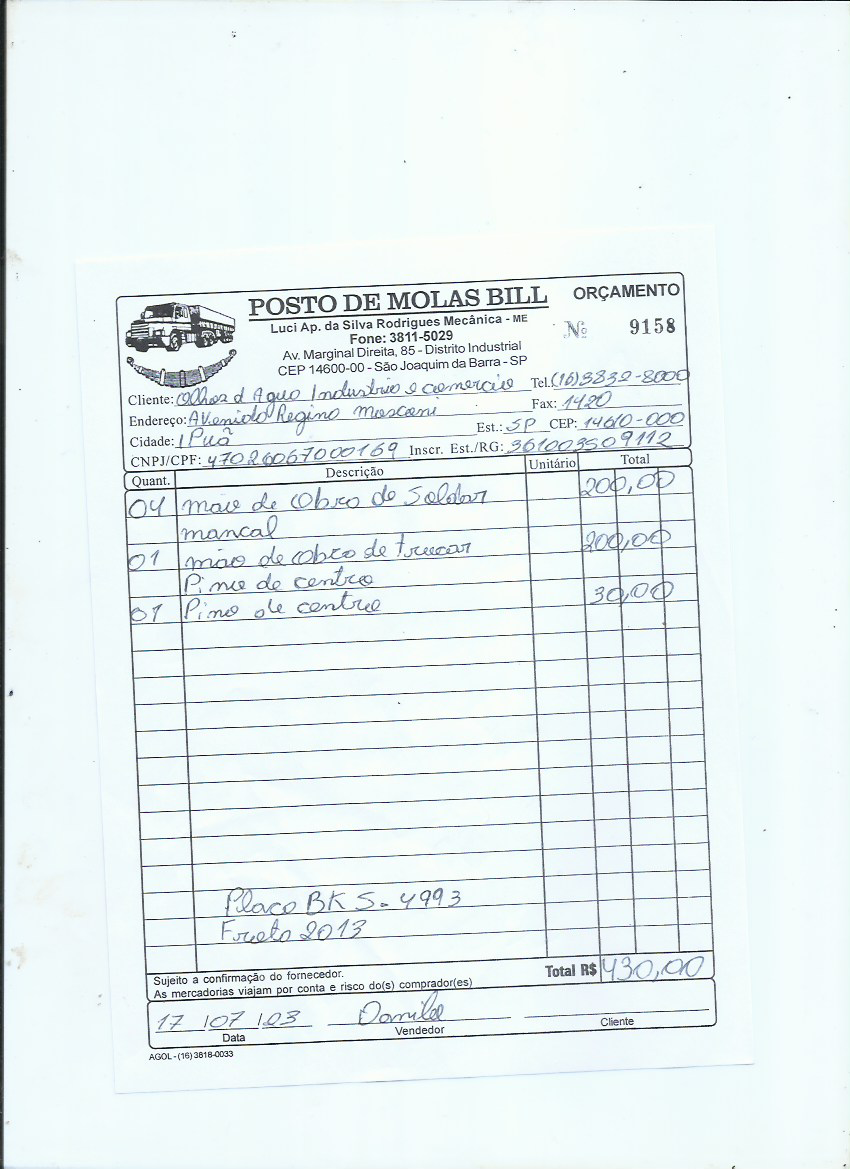 POSTO DE MOLAS BILL
ORÇAMENTO
Luci Ap. da Silva Rodrigues Mecânica - ME
Fone: 3811-5029
Nº 9158
Av. Marginal Direita, 85 - Distrito Industrial
CEP 14600-00 - São Joaquim da Barra - SP
Cliente: Olhos d Agua Industria e comercio Tel. (16) 3832-8000
Endereço: AVenida Regino Mascani Fax: 1420
Cidade: IPuã Est.: SP CEP: 14610-000
CNPJ/CPF: 47026067000169 Inscr. Est./RG: 361003509112
Quant. Descrição Unitário Total
04 mão de Obra de Soldar 200,00
mancal
01 mão de obra de trucar 200,00
Pino de centro
01 Pino de centro 30,00
Placa BKS-4993
Frota 2013
Sujeito a confirmação do fornecedor.
As mercadorias viajam por conta e risco do(s) comprador(es)
Total R$ 430,00
17 107 123 Danilo
Data Vendedor Cliente
AGOL - (16) 3818-0033